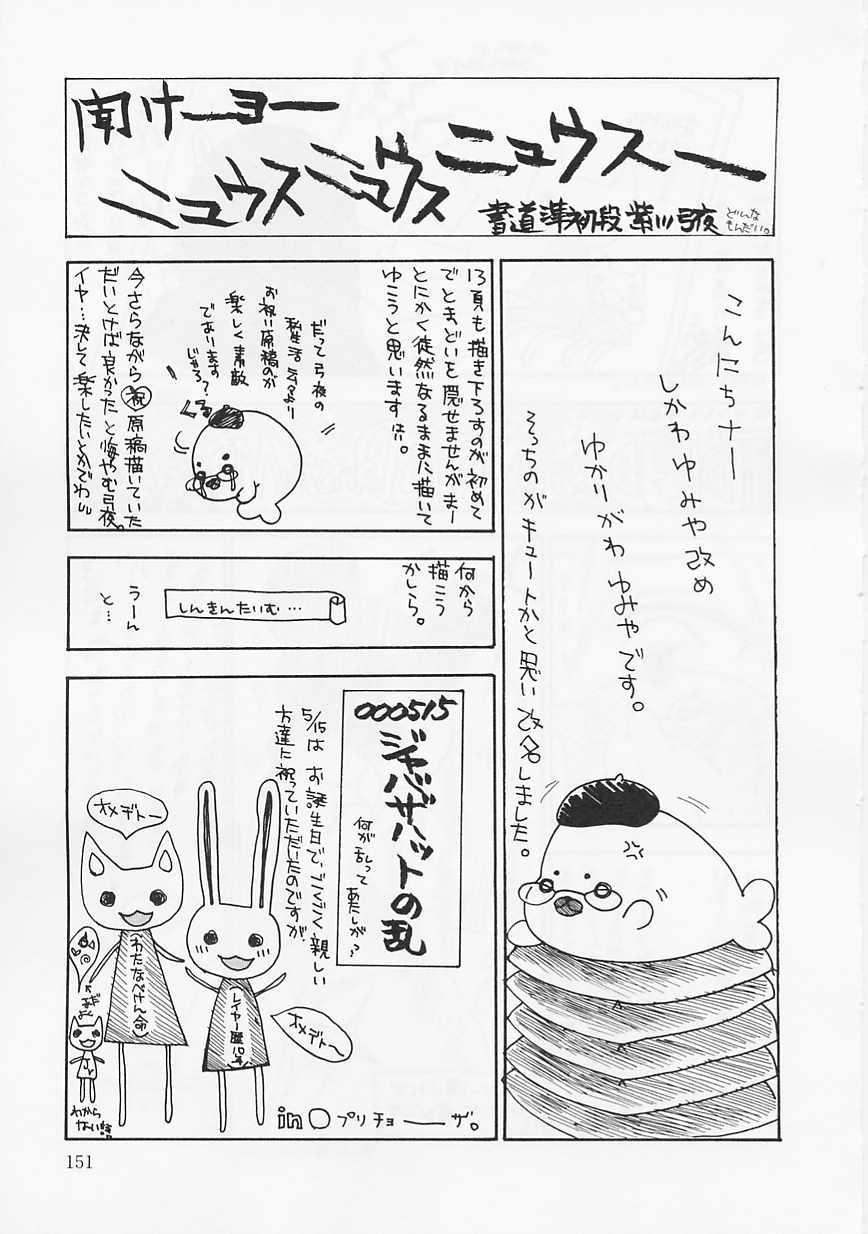 聞けーヨー
ニュウスニュウスニュウスー
書道準初段 紫川弓夜
どんな
もんだい。
こんにちナー
しかわゆみや改め
ゆかりがわ ゆみやです。
そっちのがキュートかと思い改名しました。
13頁も描き下ろすのが初めて
でとまどいを隠せませんがまー
とにかく徒然なるままに描いて
ゆこうと思います
だって弓夜の
私生活
お祝い原稿のが
楽しく素敵
であります
じゃろ?
今さらながら祝原稿描いていた
だいとけば良かったと悔やむ弓夜。
イヤ…決して楽したいとかでわ
何から
描こう
かしら。
しんきんたいむ…
うーん
と…
000515
ジャバザハットの乱
何が乱って
あたしが?
5/15は お誕生日で、ごくごく親しい
方達に祝っていただいたのですが、
オメデトー
わたなべけん(命)
レイヤー歴10年
オメデトー
わから
ない話
in○プリチョーーザ。
151